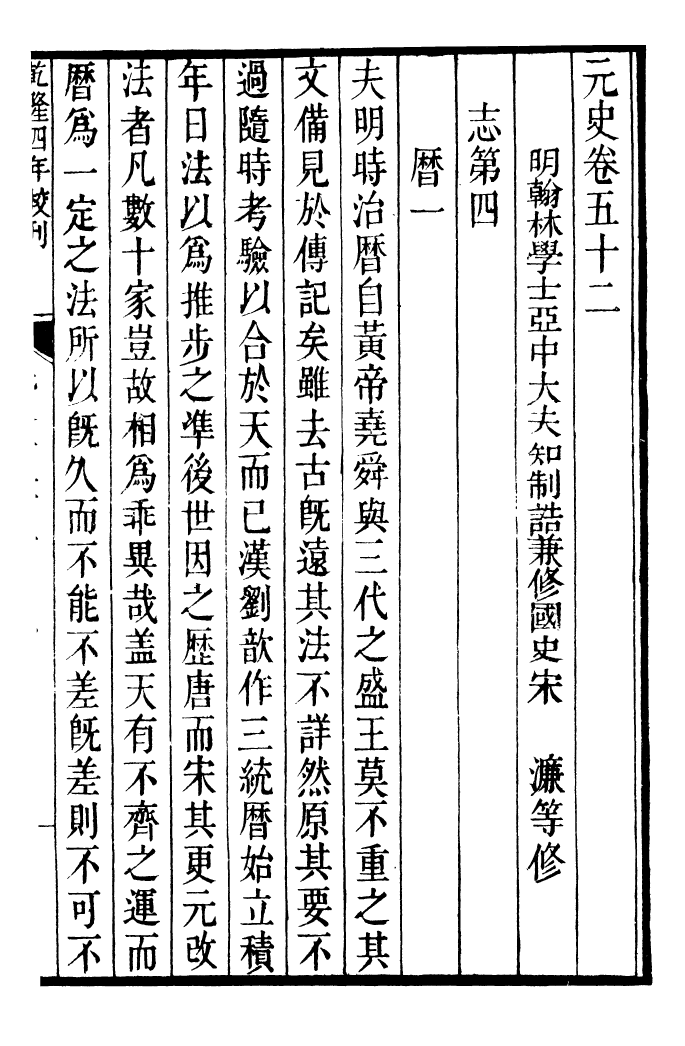 元史卷五十二
明翰林學士亞中大夫知制誥兼修國史宋 濂等修
志第四
曆一
夫明時治曆自黃帝堯舜與三代之盛王莫不重之其
文備見於傳記矣雖去古旣遠其法不詳然原其要不
過隨時考驗以合於天而已漢劉歆作三統曆始立積
年日法以爲推步之準後世因之歷唐而宋其更元改
法者凡數十家豈故相爲乖異哉盖天有不齊之運而
曆爲一定之法所以旣久而不能不差旣差則不可不
乾隆四年校刊